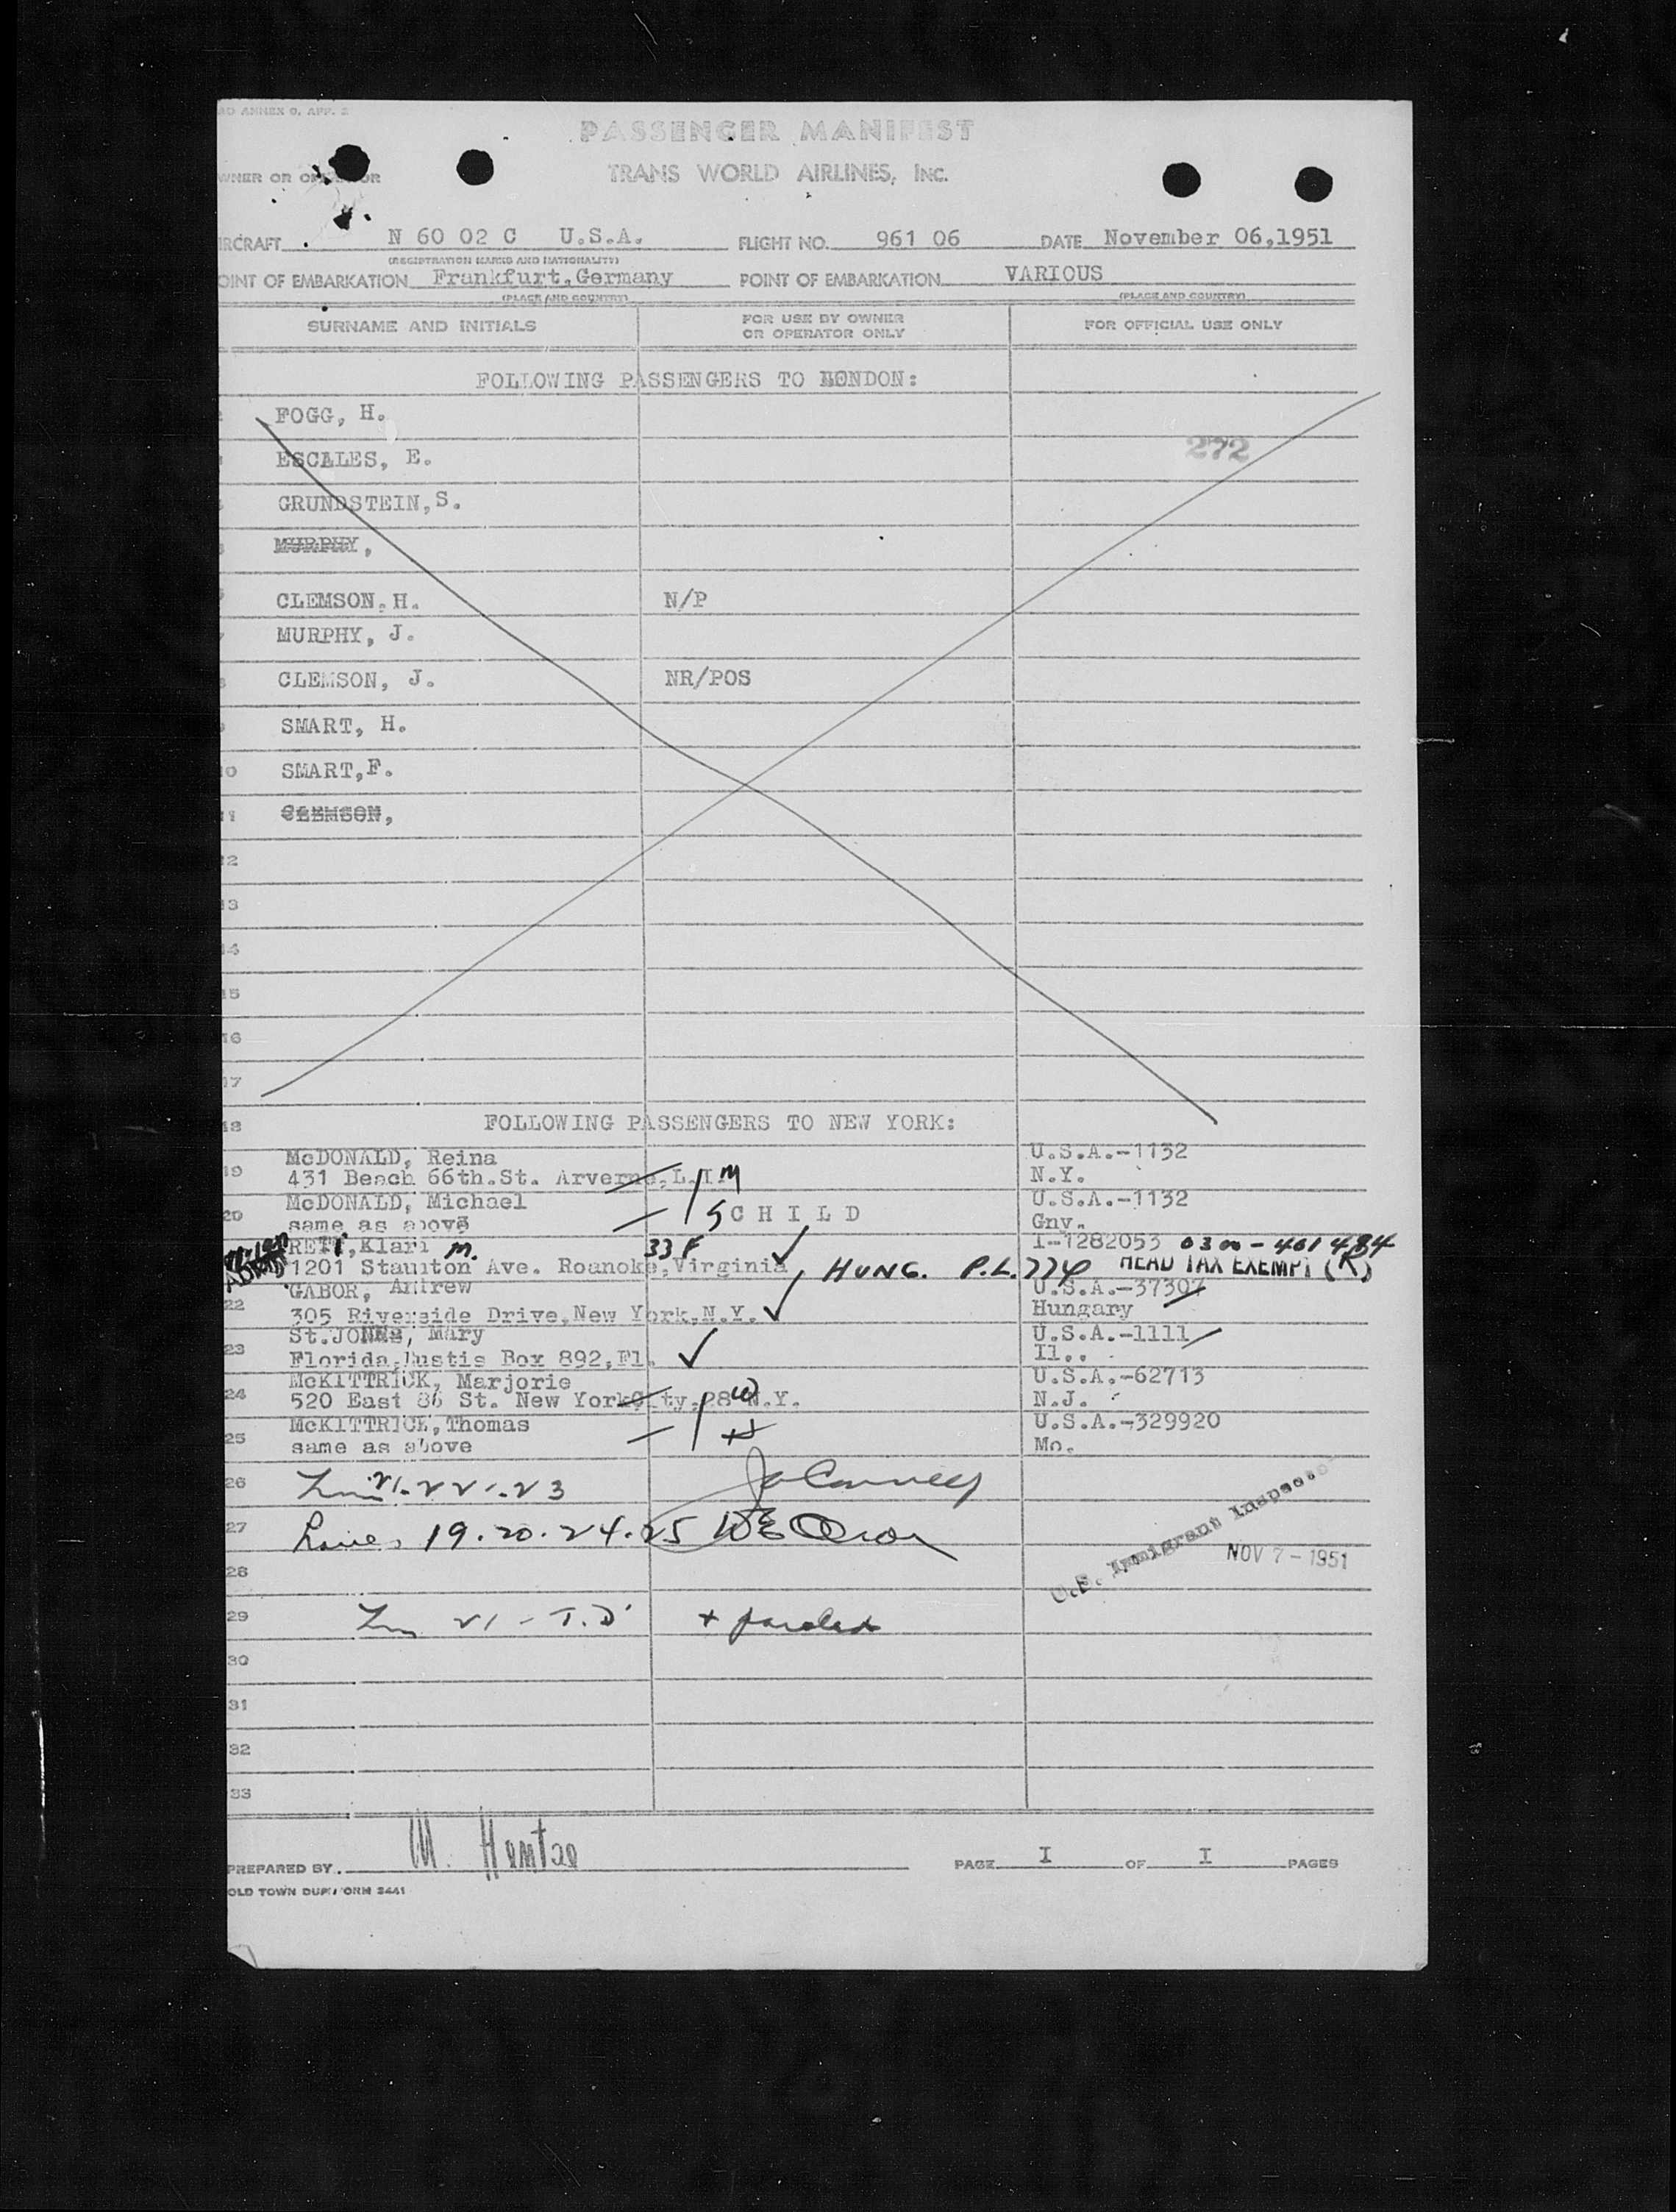 ANNEX 9, APP. 2
PASSENGER MANIFEST
TRANS WORLD AIRLINES, INC.
WNER OR OPERATOR
IRCRAFT N 60 02 C U.S.A. FLIGHT NO. 961 06 DATE November 06,1951
(REGISTRATION MARKS AND NATIONALITY)
OINT OF EMBARKATION Frankfurt,Germany POINT OF EMBARKATION VARIOUS
(PLACE AND COUNTRY) (PLACE AND COUNTRY)
SURNAME AND INITIALS FOR USE BY OWNER OR OPERATOR ONLY FOR OFFICIAL USE ONLY
FOLLOWING PASSENGERS TO LONDON:
FOGG, H.
ESCALES, E. 272
GRUNDSTEIN,S.
MURPHY,
CLEMSON,H. N/P
MURPHY, J.
CLEMSON, J. NR/POS
SMART, H.
10 SMART,F.
11 CLEMSON,
12
13
14
15
16
17
18 FOLLOWING PASSENGERS TO NEW YORK:
McDONALD, Reina U.S.A.-1132
19 431 Beach 66th.St. Arverne,L.I. M N.Y.
McDONALD, Michael U.S.A.-1132
20 same as above S CHILD Gnv.
RETI,Klari M. 33 F I-1282053 0300-401484
1201 Staunton Ave. Roanoke,Virginia HUNG. P.L.774 HEAD TAX EXEMPT (R)
GABOR, Andrew U.S.A.-37307
22 305 Riverside Drive,New York,N.Y. Hungary
St.JONES, Mary U.S.A.-1111
23 Florida,Eustis Box 892,Fl. Il..
McKITTRICK, Marjorie U.S.A.-62713
24 520 East 86 St. New York City,28 N.Y. W N.J.
McKITTRICK,Thomas U.S.A.-329920
25 same as above Mo.
26 21-22-23
27 Lines 19.20.24.25
U.S. Immigrant Inspector
NOV 7 - 1951
28
29 21 - T.D. + paroled
30
31
32
33
PREPARED BY M. Hemtze PAGE I OF I PAGES
OLD TOWN FORM 3441